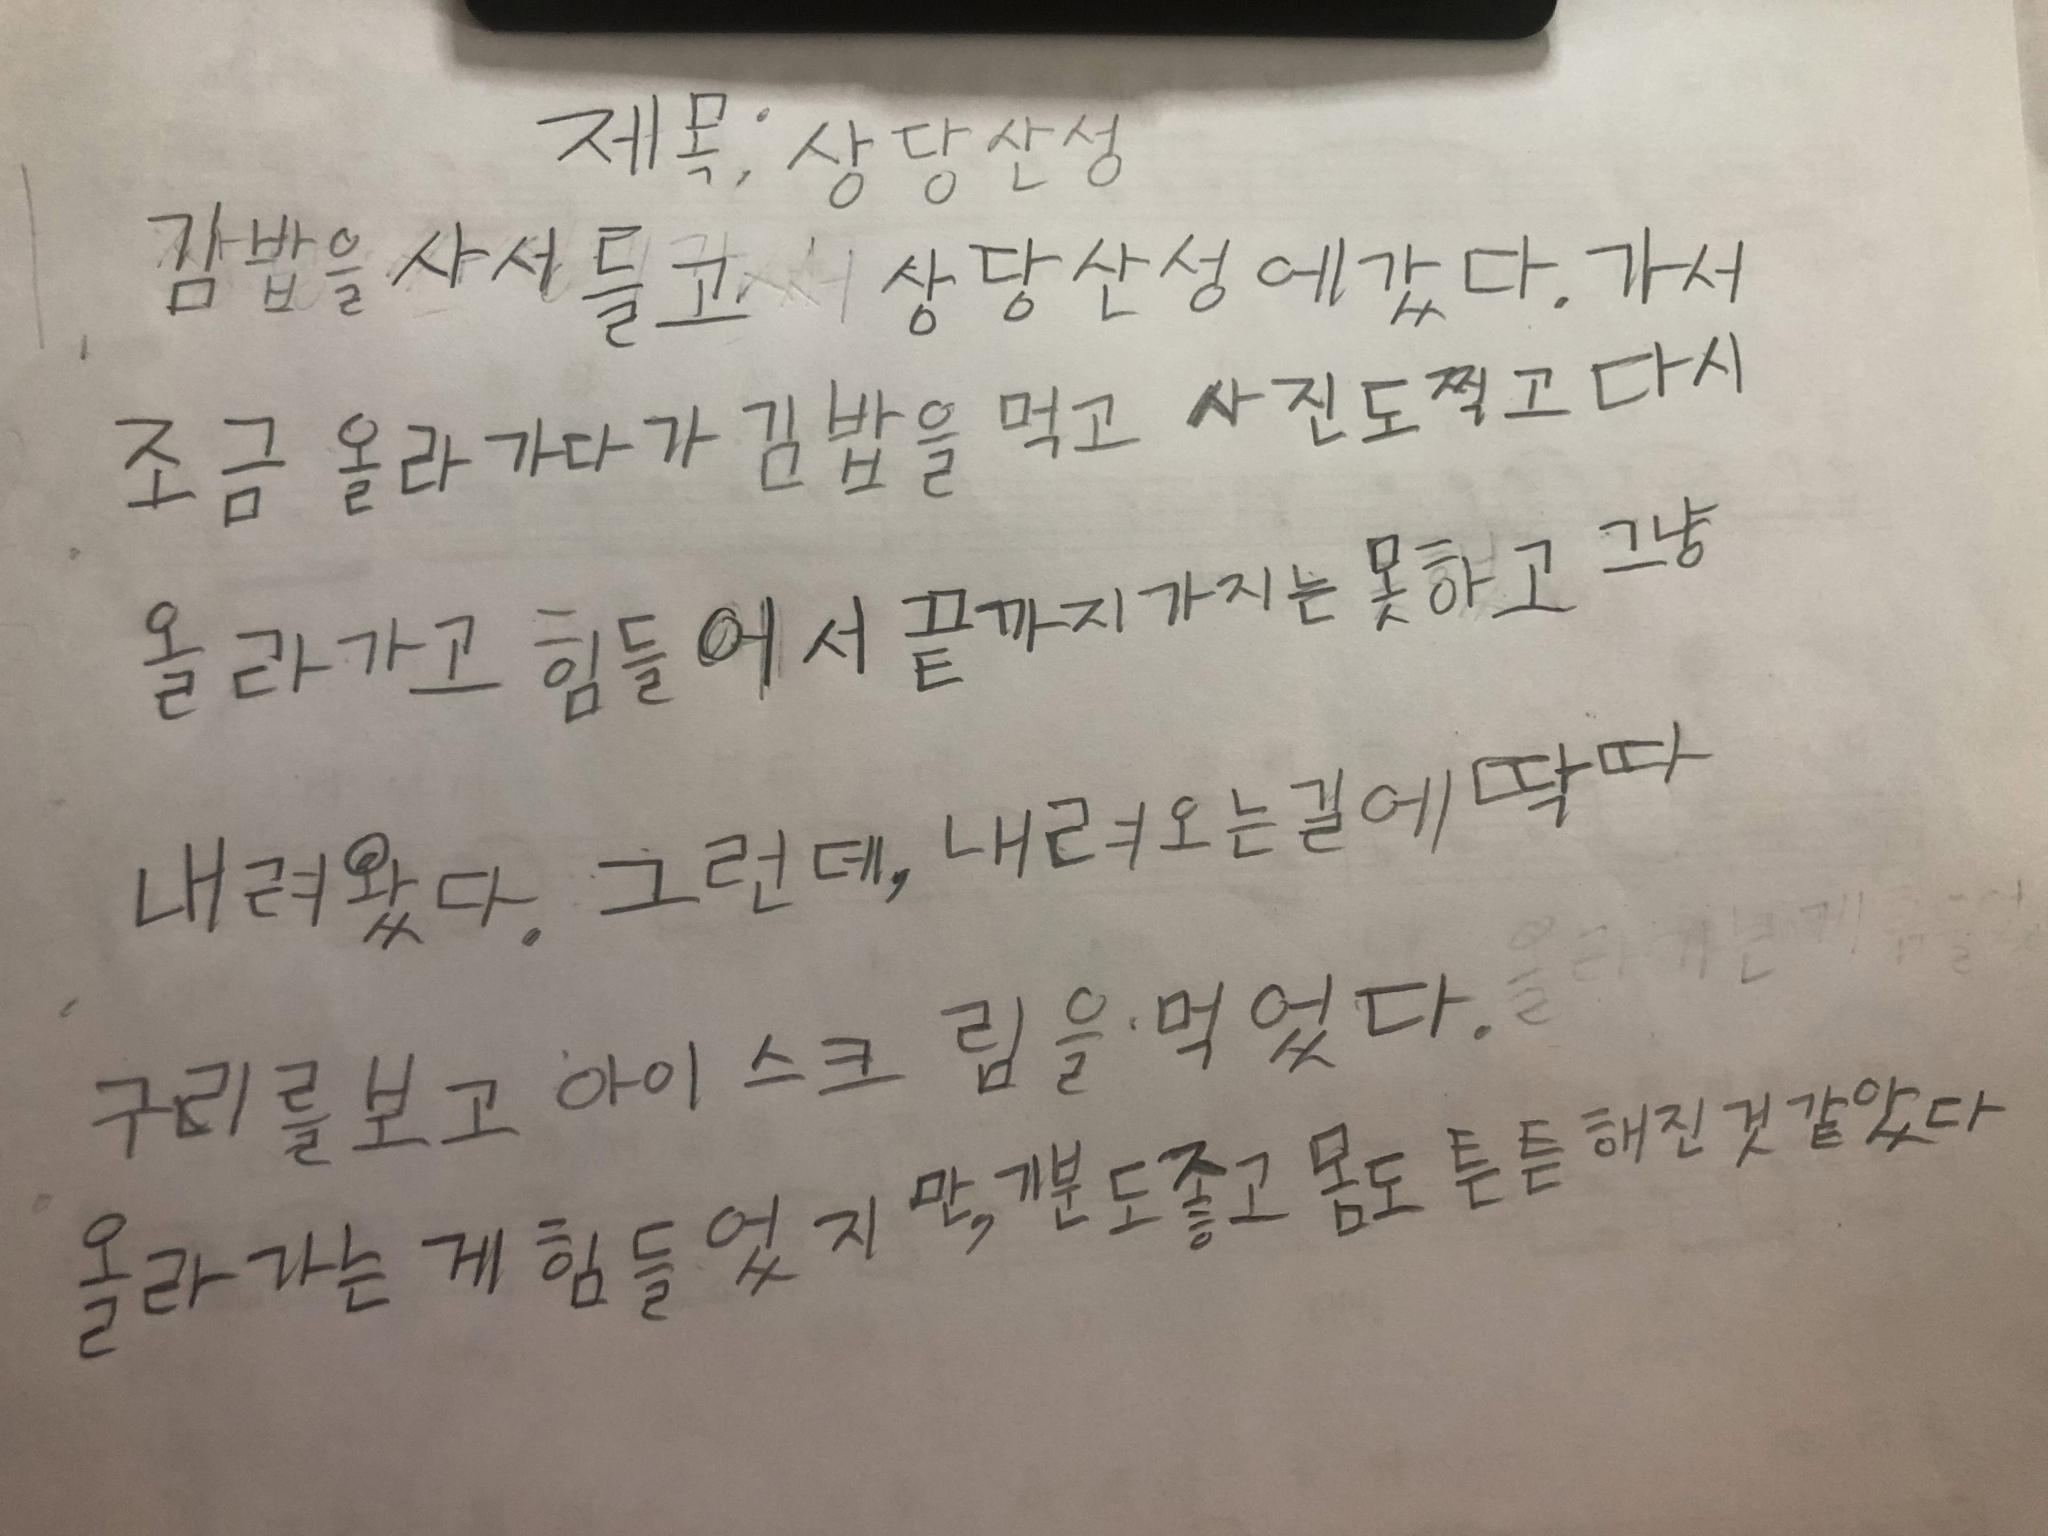 제목; 상당산성
김밥을 사서 들고 상당산성에 갔다. 가서
조금 올라가다가 김밥을 먹고 사진도 찍고 다시
올라가고 힘들어서 끝까지 가지는 못하고 그냥
내려왔다. 그런데, 내려오는 길에 딱따
구리를 보고 아이스크림을 먹었다.
올라가는 게 힘들었지만, 기분도 좋고 몸도 튼튼해진 것 같았다